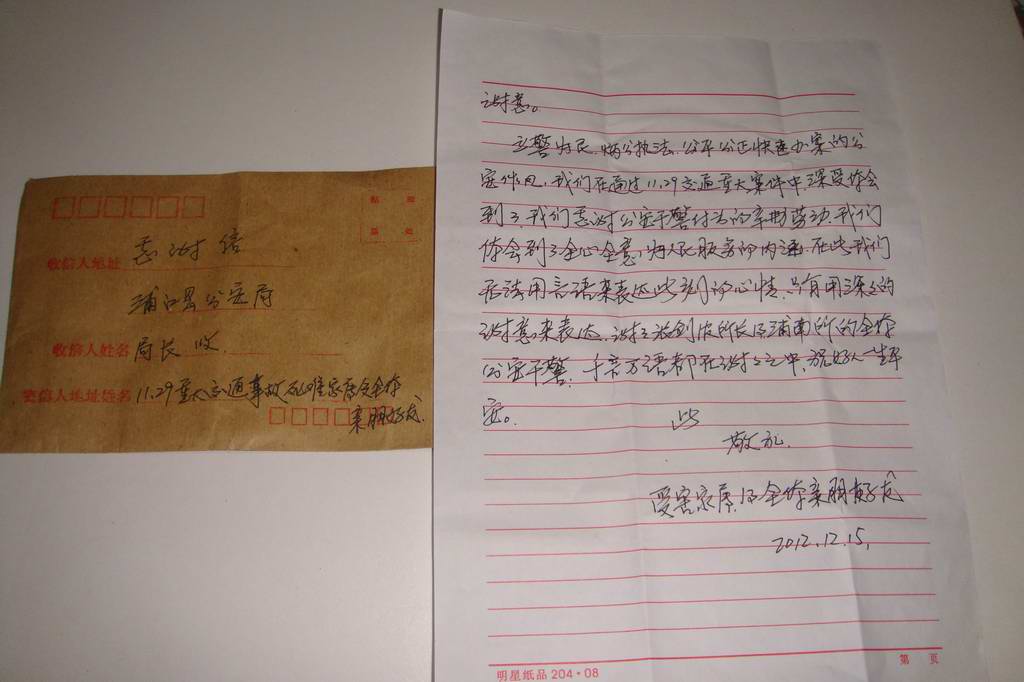 贴 邮
票 处
感谢信
收信人地址
浦口公安局
收信人姓名 局长收
寄信人地址姓名 11.29重大交通事故死难家属及全体
亲朋好友
谢意。
立警为民、执法、公平公正快速办案的公
安作风,我们在通过11.29交通重大案件中深受体会
到了,我们感谢公安干警付出的辛勤劳动,我们
体会到了全心全意为人民服务的内涵,在此我们
无法用言语来表达此刻的心情,只有用深深的
谢意来表达,谢所长及浦南所的全体
公安干警,千言万语都在谢之中,祝好人一生平
安。 此
敬礼
受害家属及全体亲朋好友
2012.12.15.
明星纸品 204·08
第 页